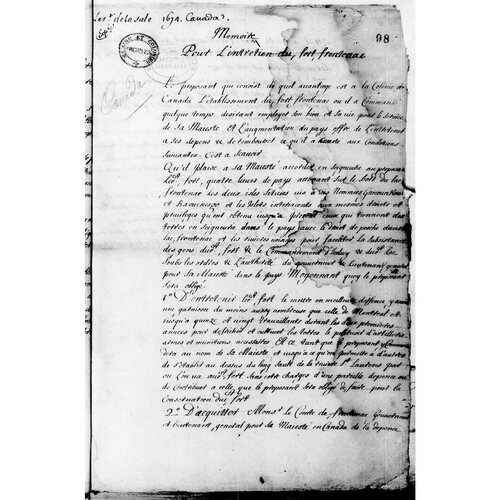 Le sr de la sale 1674. Canada.
98
Memoire
Pour L'entretien du, fort, frontenac
Canada
Le proposant qui connoist de quel avantage est a la Colonie de
Canada L'establissement du, fort, frontenac ou il a Commandé
quelque temps desirant employer son bien et sa vie pour le service
de sa Majesté et L'augmentation du pays offre de L'entretenir
a ses depens & de rembourser ce qu'il a Couste aux Conditions
suivantes. C'est a scavoir
Qu'il plaise a sa Majesté accorder en seigneurie au proposant
Led. fort, quatre lieues de pays le bord du lac
frontenac les deux isles
et et les Islots interjacents aux mesmes droits et
privileges qu'ont obtenu jusqu'a present ceux qui tiennent des
terres en seigneurie dans le pays avec le droit de pesche dans le
lac, frontenac et les rivieres pour faciliter la subsistance
des gens dud. fort & le Commandement d'Iceluy & dud. lac
soubs les ordres & L'authorité du gouverneur & Lieutenant general
pour sa Majesté dans le pays Moyennant quoy le proposant
sera obligé.
1º D'entretenir led. fort le mettre en meilleure deffence, y avoir
une garnison du moins aussy nombreuse que celle de Montreal et
jusqu'a quinze et vingt travaillants durant les deux premieres
années pour defricher et cultiver les terres le pourvoir d'artillerie
armes et munitions necessaires Et ce tant que le proposant y Commandera
au nom de sa Majesté et jusqu'a ce qu'on permette a d'autres
de s'establir au dessus du long sault de la riviere St. Laurens par
ou L'on va aud. fort sans estre chargés d'une pareille depence ou
de contribuer a celle, que le proposant sera obligé de faire pour la
Conservation dud. fort
2º D'acquitter Monsr. Le Comte de, frontenac Gouverneur
et Lieutenant, general pour sa Majesté en Canada de la depence